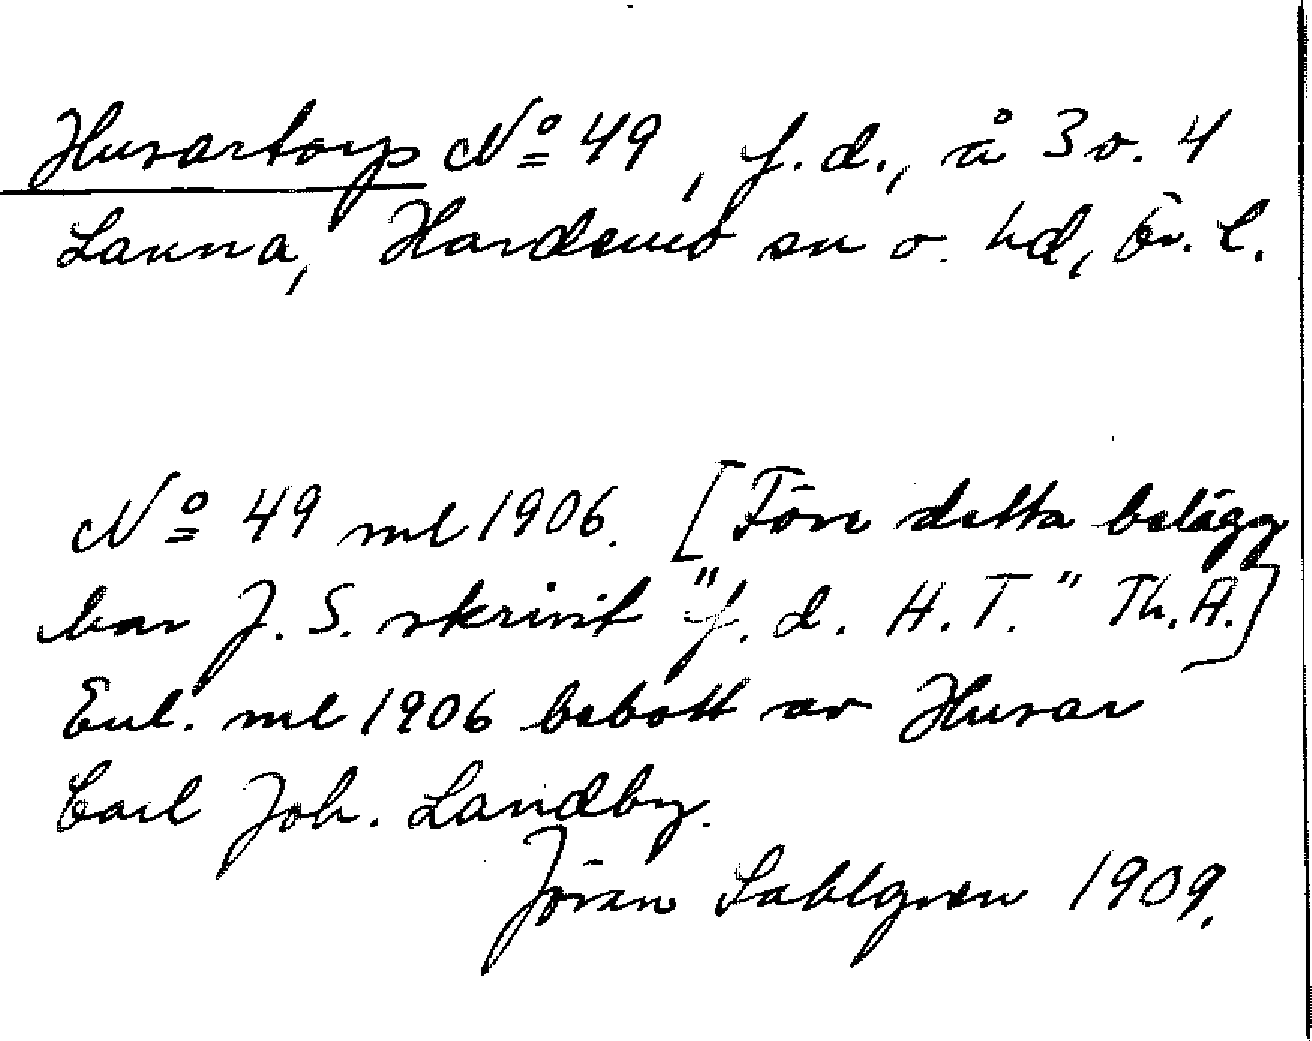 Husartorp No 49, f.d., å 3 o. 4
Lanna, Hardemo sn o. hd, Ör. l.
No 49 ml 1906. [Före detta belägg
har J. S. skrivit "f. d. H. T." Th. A.]
Enl. ml 1906 bebott av Husar
Carl Joh. Landby.
Jöran Sahlgren 1909.